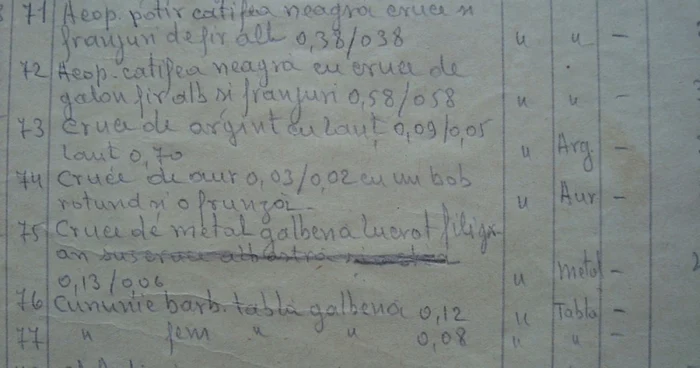 71 Acop. potir catifea neagra cruce si
franjuri de fir alb 0,38/038 " " —
72 Acop. catifea neagra cu cruce de
galon fir alb si franjuri 0,58/058 " " —
73 Cruce de argint cu lanț 0,09/0,05
lanț 0,70 " Arg. —
74 Cruce de aur 0,03/0,02 cu un bob
rotund si o frunză " Aur —
75 Cruce de metal galbena lucrat filigr-
an sus cruce albastra
0,13/006 " Metal —
76 Cununie barb. tabla galbena 0,12 " Tabla —
77 " fem " " 0,08 " " —